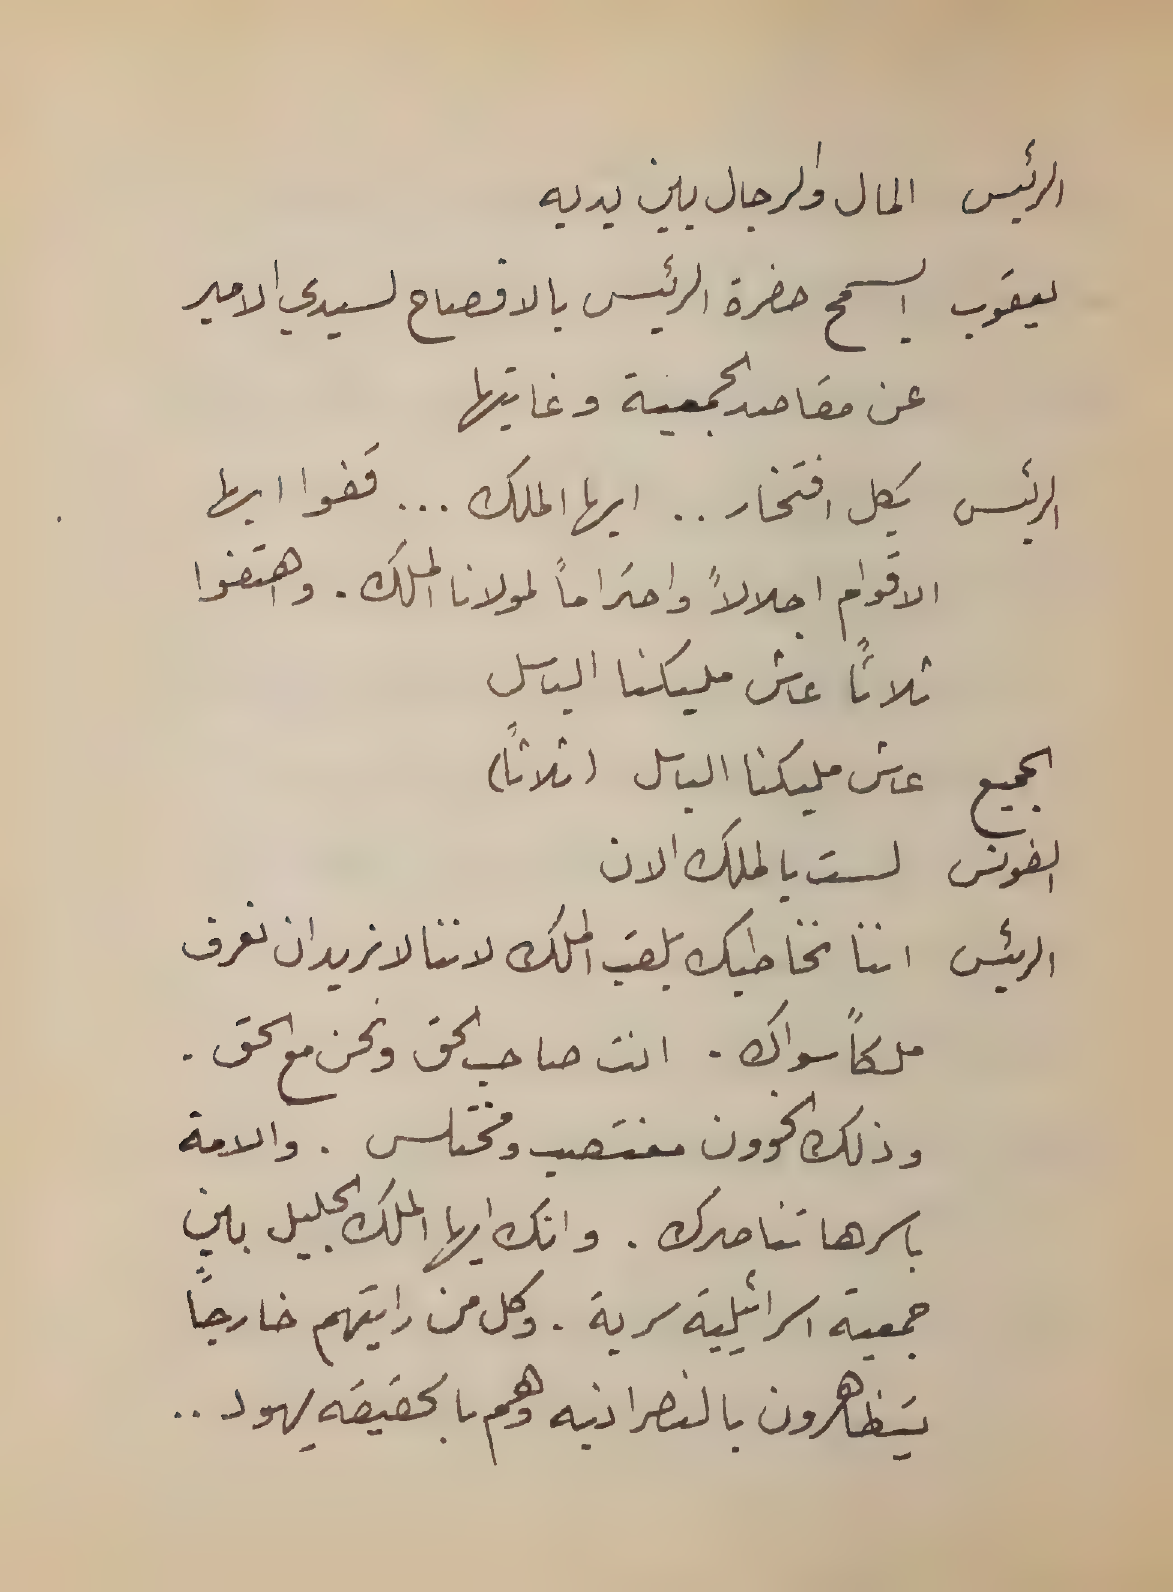 الرئيس المال والرجال بين يديه
يعقوب ايسمح حضرة الرئيس بالافصاح لسيدي الامير
عن مقاصد الجمعية وغايتها
الرئيس بكل افتخار .. ايها الملك ... قفوا ايها
الاقوام اجلالاً واحتراماً لمولانا الملك . واهتفوا
ثلاثاً عاش مليكنا الباسل
الجميع عاش مليكنا الباسل (ثلاثاً)
الفونس لست بالملك الان
الرئيس اننا نخاطبك بلقب الملك لاننا لا نريد ان نعرف
ملكاً سواك . انت صاحب الحق ونحن مع الحق .
وذلك الخوون مغتصب ومختلس . والامة
باسرها تناصرك . وانك ايها الملك الجليل بين
جمعية اسرائيلية سرية . وكل من رايتهم خارجاً
يتظاهرون بالنصرانيه وهم بالحقيقه يهود ..